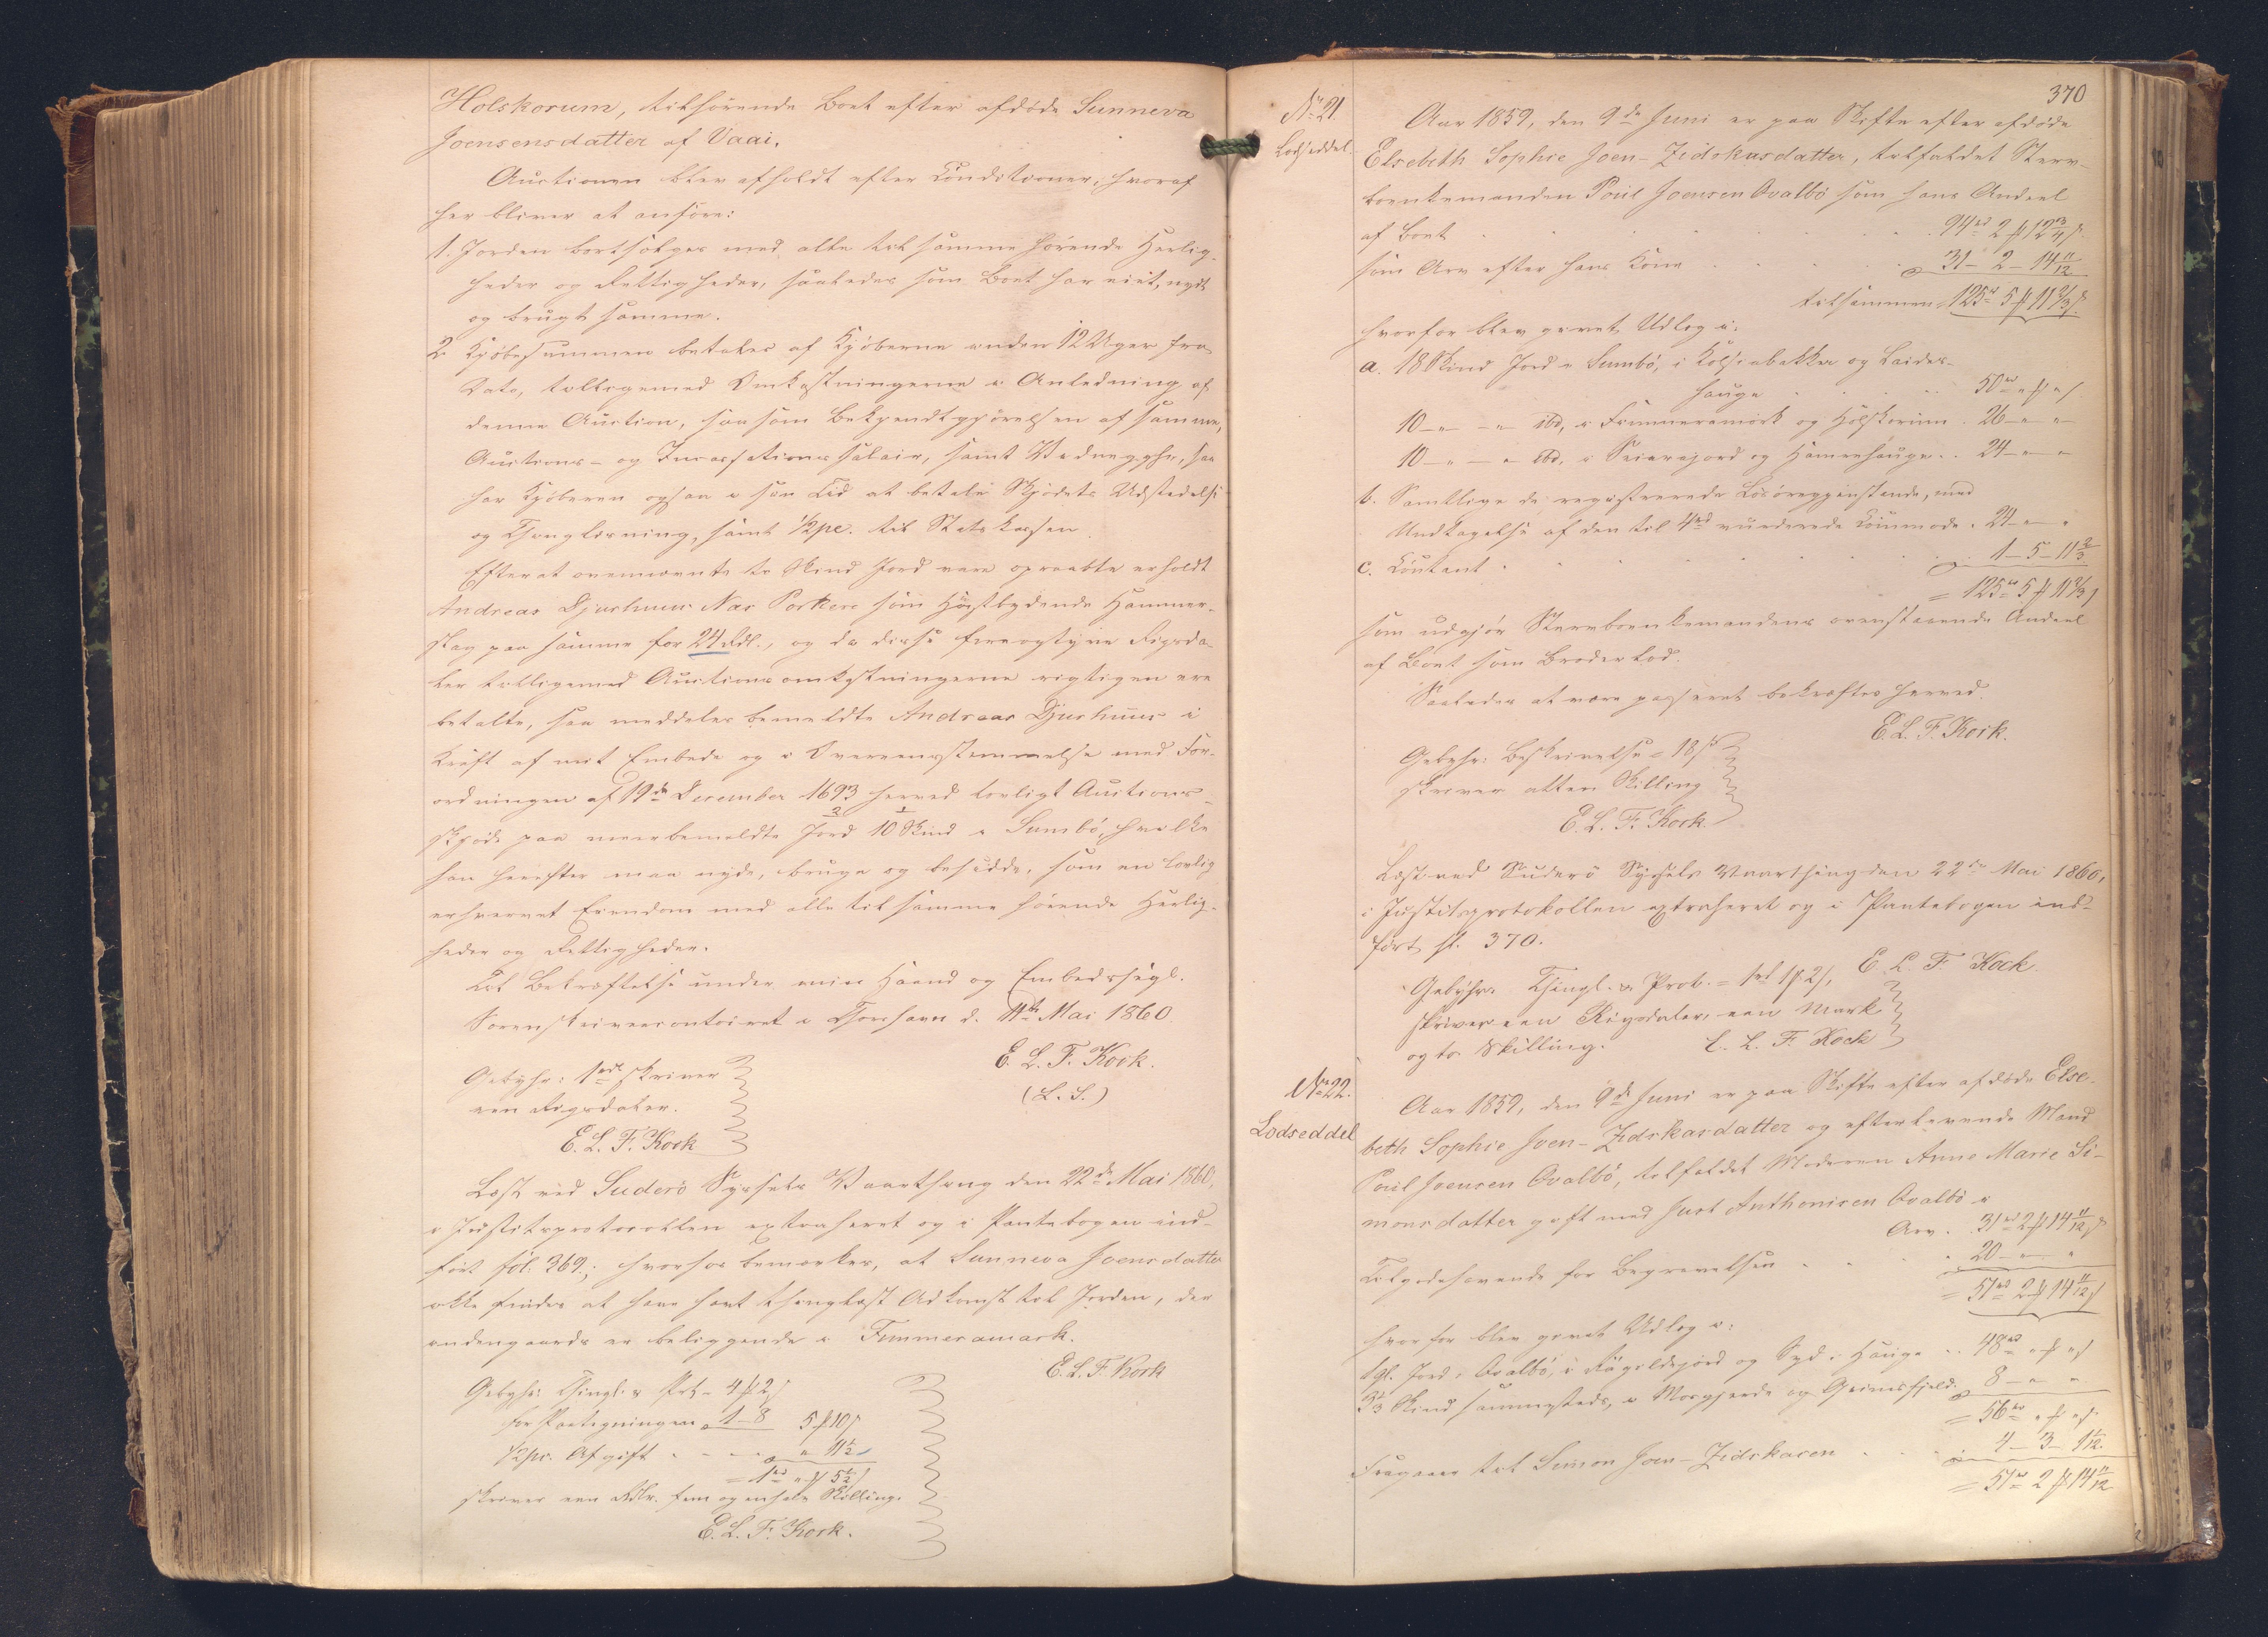 Holskorum, tilhørende Boet efter afdøde Sunneva
Joensensdatter af Vaai.
Auctionen blev afholdt efter Conditioner, hvoraf
her bliver at anføre:
1. Jorden bortsælges med alle til samme hørende Herlig-
heder og Rettigheder, saaledes som Boet har eiet, nydt
og brugt samme.
2. Kjøbesummen betales af Kjøberne inden 12 Uger fra
Dato, tilligemed Omkostningerne i Anledning af
denne Auction, saasom Bekjendtgjørelsen af samme,
Auctions- og Incassations salair, samt
har Kjøberen ogsaa i sin Tid at betale Skjødets Udstedelse
og Thinglæsning, samt 1/2 pc. til Statskassen.
Efterat ovennævnte to Skind Jord vare opraabte erholdt
Andreas Djurhuus Næs Porkere som Høistbydende Hammer-
slag paa samme for 24 Rdl., og da disse fire og tyve Rigsda-
ler tilligemed Auctionsomkostningerne rigtigen ere
betalte, saa meddeles bemeldte Andreas Djurhuus i
Kraft af mit Embede og i Overensstemmelse med For-
ordningen af 19de December 1693 herved lovligt Auctions-
skjøde paa meerbemeldte Jord 10 Skind i Sumbø, hvilke
han herefter maa nyde, bruge og besidde, som en lovlig
erhvervet Eiendom med alle til samme hørende Herlig-
heder og Rettigheder.
Til Bekræftelse under min Haand og Embedssegl.
Sorenskrivercontoiret i Thorshavn d. 11te Mai 1860.
E. L. F. Kock.
(L. S.)
Gebyhr: 1 rdl skriver
een Rigsdaler.
E. L. F. Kock
Læst ved Suderø Syssels Vaarthing den 22de Mai 1860,
i Justitsprotocollen extraheret og i Pantebogen ind-
ført fol. 369; hvorhos bemærkes, at Sunneva Joensdatter
ikke findes at have havt thinglæst Adkomst til Jorden, der
andengaards er beliggende i Fimmeramark.
E. L. F. Kock
Gebyhr: Thingl. & Prt. 4 ß 2
for Paategningen 1-8 5 10
1/2 pc. Afgift - - - " 11 1/2
= 1 rd " 5 1/2
skriver een Rdlr. fem og en halv Skilling.
E. L. F. Kock.
370
No. 21
Lodseddel.
Aar 1859, den 9de Juni er paa Skifte efter afdøde
Elsebeth Sophie Joen-Zidskasdatter, tilfaldet Sterv-
boenkemanden Poul Joensen Qvalbø som hans Andeel
af Boet . . . . . 94 rd 2 12 3/4
som Arv efter hans Kone . . . 31 - 2 - 14 11/12
tilsammen = 125 rd 5 11 2/3
hvorfor blev gjort Udlæg i:
a. 18 Skind Jord i Sumbø, i Kolsiabakka og Laides-
hauge . . . 50 rd " "
10 - " - " ibd, i Fimmeramørk og Holskorum . 26 - " "
10 - " - " ibd, i Seierajord og Hamrahauge . . 24 - " "
b. Samtlige de registrerede Løsøregjenstande, med
Undtagelse af den til 4 rd vurderede Commode . 24 - " "
c. Contant . . . . . 1 - 5 - 11 2/3
= 125 rd 5 11 2/3
som udgjør Stervboenkemandens ovenstaaende Andeel
af Boet som Broderlod.
Saaledes at være passeret bekræftes herved.
E. L. F. Kock.
Gebyhr: Beskrivelse = 18 ß
skriver atten Skilling
E. L. F. Kock.
Læst ved Suderø Syssels Vaarthing den 22de Mai 1860,
i Justitsprotokollen extraheret og i Pantebogen ind-
ført fl. 370.
E. L. F. Kock.
Gebyhr. Thingl. & Prot. = 1 rd 1 2,
skriver een Rigsdaler, een Mark
og to Skilling. E. L. F. Kock
No. 22.
Lodseddel
Aar 1859, den 9de Juni er paa Skifte efter afdøde Else-
beth Sophie Joen-Zidskasdatter og efterlevende Mand
Poul Joensen Qvalbø, tilfaldet Moderen Anne Marie Si-
monsdatter gift med Just Anthonisen Qvalbø i
Arv . 31 rd 2 14 11/12
Tilgodehavende for Begravelsen . . . 20 - " "
= 51 rd 2 14 11/12
hvorfor blev gjort Udlæg i:
1 gl. Jord i Qvalbø, i Røgeldsjord og Syd i Hauge . . 48 rd " "
3 1/3 Skind sammesteds, i Morgjerde og Greinisfjeld. 8 - " "
= 56 rd " "
Fragaaer til Simon Joen-Zidskasen . . . 4 - 3 - 1 1/12
= 51 rd 2 14 11/12